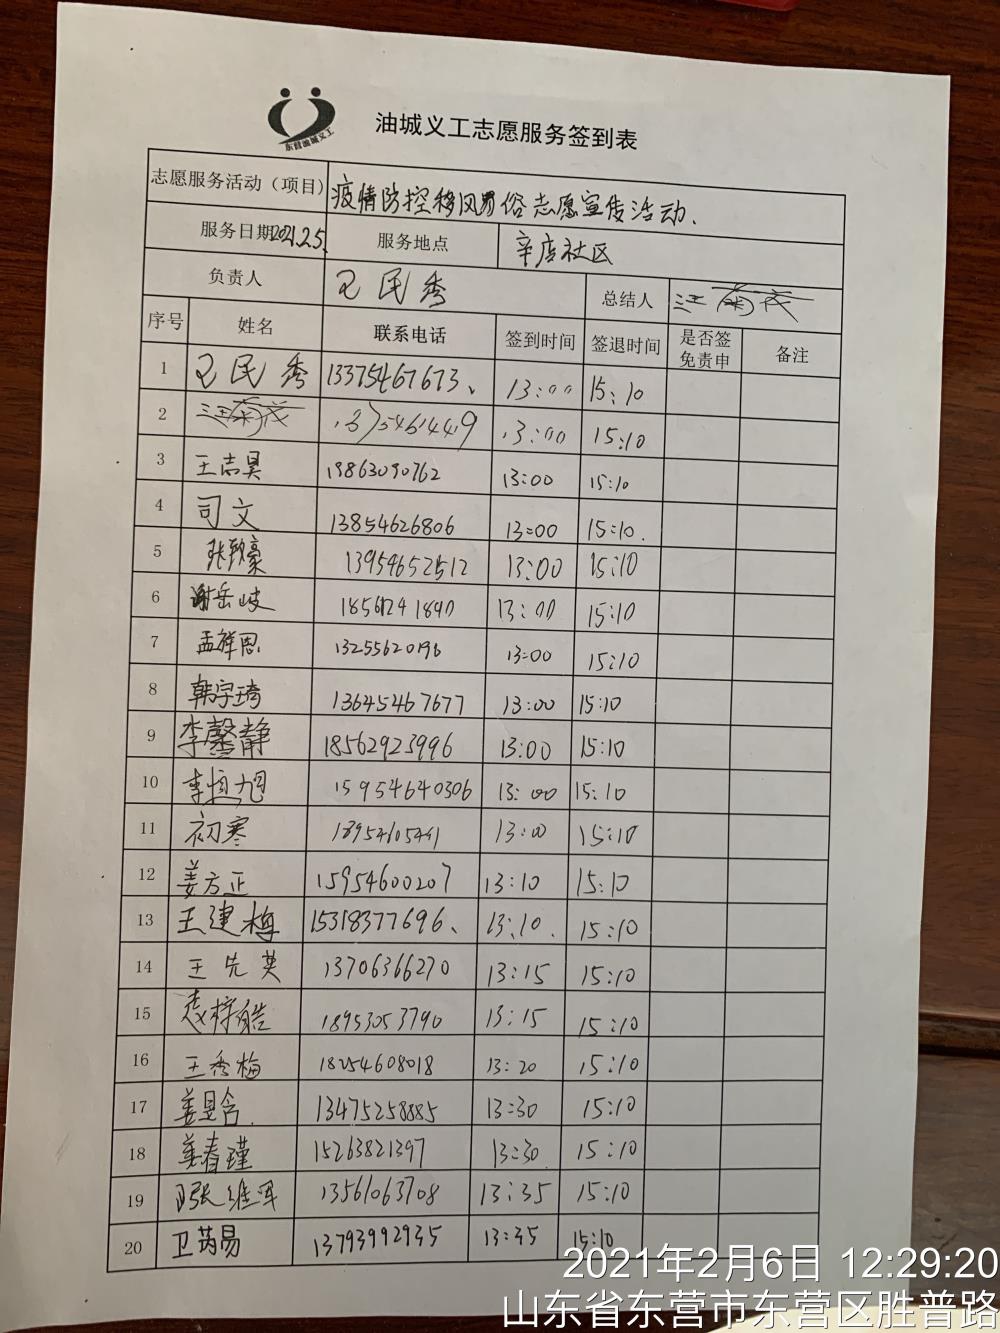 东营油城义工
油城义工志愿服务签到表
志愿服务活动（项目） 疫情防控移风易俗志愿宣传活动、
服务日期 2021.2.5. 服务地点 辛店社区
负责人 民秀 总结人
序号 姓名 联系电话 签到时间 签退时间 是否签免责申 备注
1 民秀 13375467673、 13:00 15:10
2 13:00 15:10
3 王志昊 19863090762 13:00 15:10
4 司文 13854626806 13:00 15:10.
5 张致豪 13954652512 13:00 15:10
6 谢岳岐 13:00 15:10
7 孟祥思 13255620196 13:00 15:10
8 韩宇琦 13645467677 13:00 15:10
9 李馨静 18562923996 13:00 15:10
10 李恒旭 15954640306 13:00 15:10
11 初寒 13:00 15:10
12 姜方正 15954600207 13:10 15:10
13 王建梅 15318377696、 13:10. 15:10
14 王先英 13706366270 13:15 15:10
15 18953053790 13:15 15:10
16 王秀梅 18254608018 13:20 15:10
17 姜昱含. 13475258885 13:30 15:10
18 姜春瑾 15263821397 13:30 15:10
19 张维 13561063708 13:35 15:10
20 卫芮易 13793992935 13:35 15:10
2021年2月6日 12:29:20
山东省东营市东营区胜普路